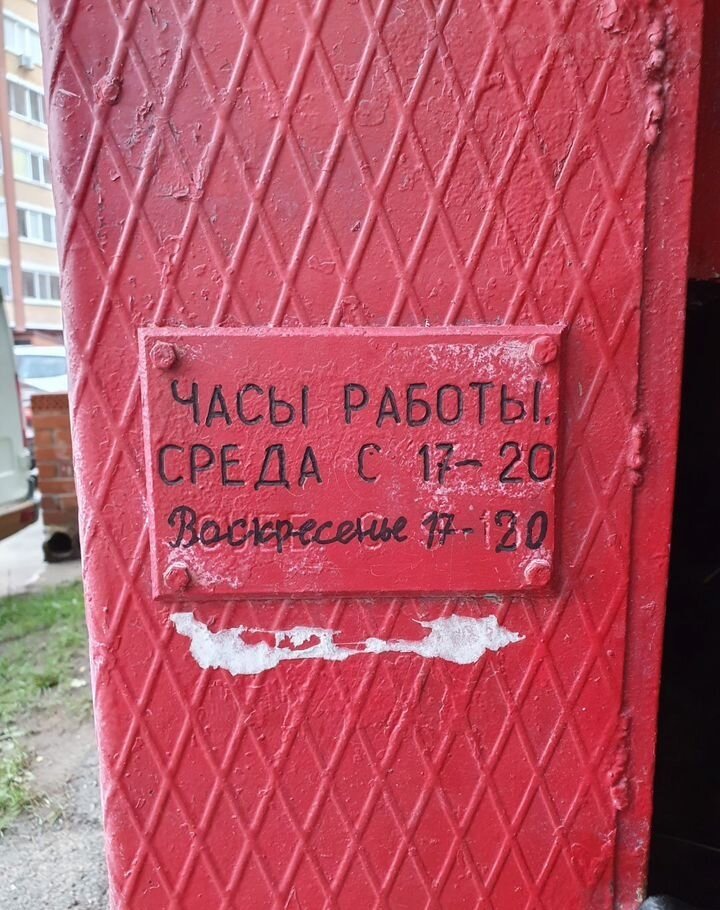 ЧАСЫ РАБОТЫ.
СРЕДА С 17-20
Воскресенье 17-20